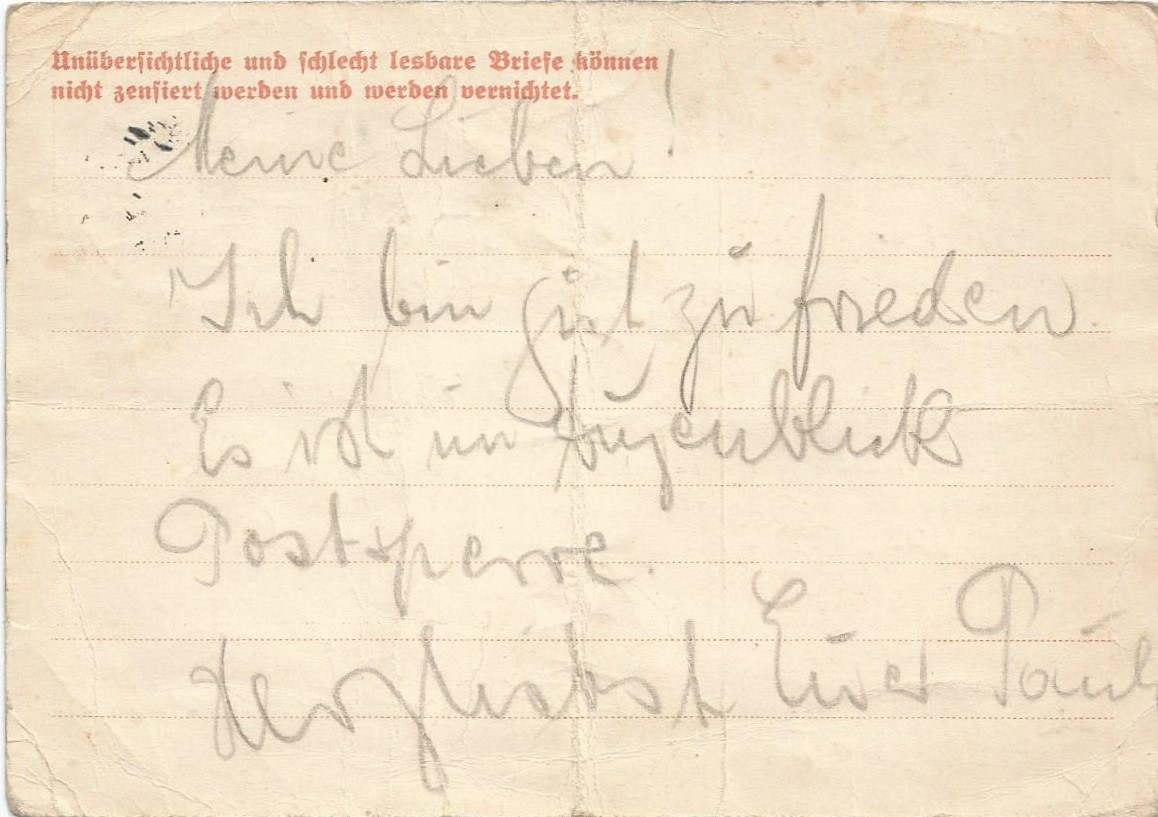 Unübersichtliche und schlecht lesbare Briefe können
nicht zensiert werden und werden vernichtet.
Meine Lieben!
Ich bin gut zufrieden.
Es ist im Augenblick
Postsperre.
Herzlichst Euer Paul